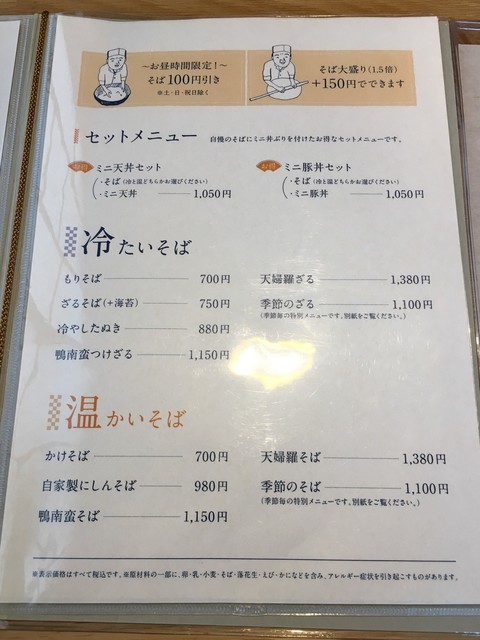 ～お昼時間限定！～
そば100円引き
※土・日・祝日除く
そば大盛り(1.5倍)
＋150円でできます
セットメニュー 自慢のそばにミニ丼ぶりを付けたお得なセットメニューです。
お得 ミニ天丼セット
・そば(冷と温どちらかお選びください)
・ミニ天丼 1,050円
お得 ミニ豚丼セット
・そば(冷と温どちらかお選びください)
・ミニ豚丼 1,050円
冷たいそば
もりそば 700円
ざるそば(+海苔) 750円
冷やしたぬき 880円
鴨南蛮つけざる 1,150円
天婦羅ざる 1,380円
季節のざる 1,100円
(季節毎の特別メニューです。別紙をご覧ください。)
温かいそば
かけそば 700円
自家製にしんそば 980円
鴨南蛮そば 1,150円
天婦羅そば 1,380円
季節のそば 1,100円
(季節毎の特別メニューです。別紙をご覧ください。)
※表示価格はすべて税込です。※原材料の一部に、卵・乳・小麦・そば・落花生・えび・かになどを含み、アレルギー症状を引き起こすものがあります。